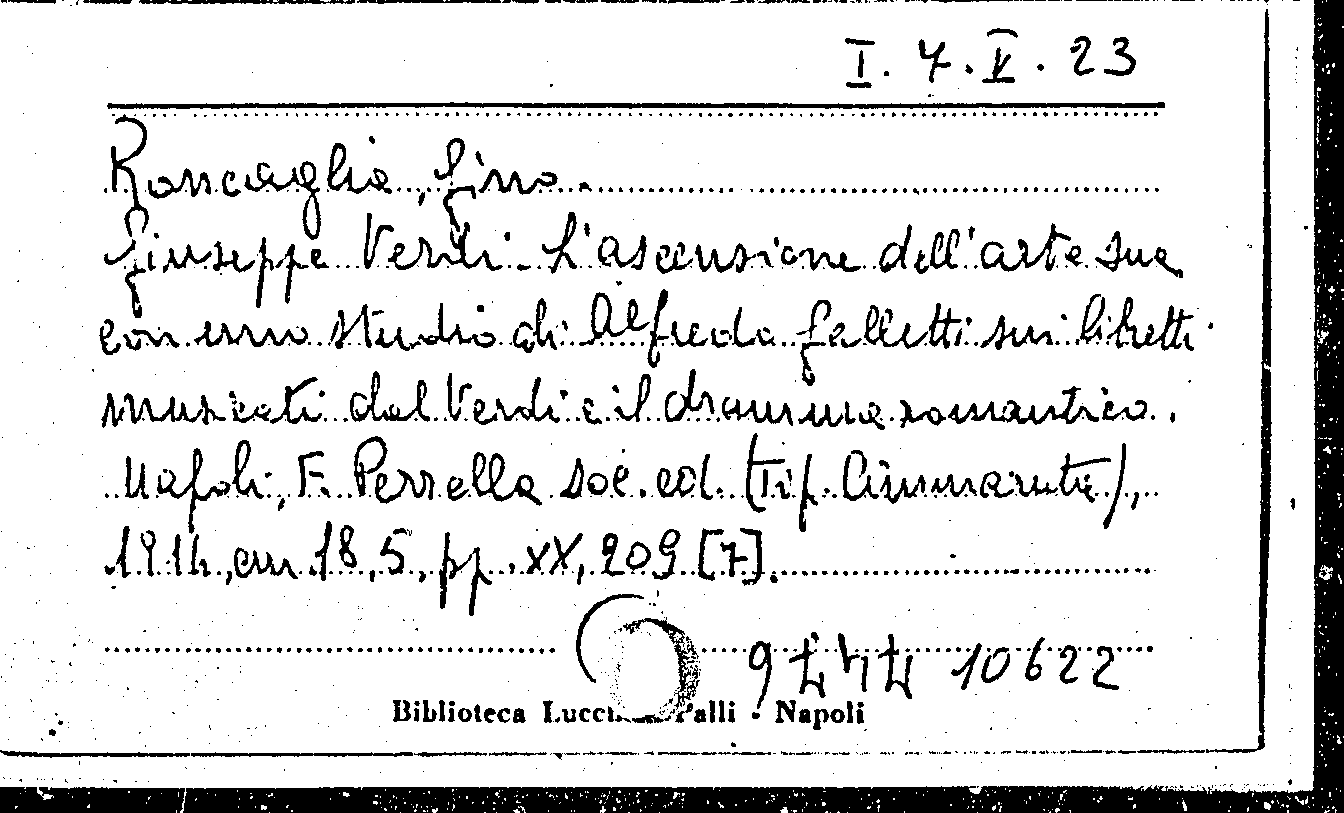 I. 7. V. 23
Roncaglia, Gino.
Giuseppe Verdi. L'ascensione dell'arte sua
con uno studio di Alfredo Galletti sui libretti
musicati dal Verdi e il dramma romantico.
Napoli, F. Perrella soc. ed. (Tip. Cimmaruta),
1914, cm. 18,5, pp. XX, 209 [7].
10622
Biblioteca Palli - Napoli